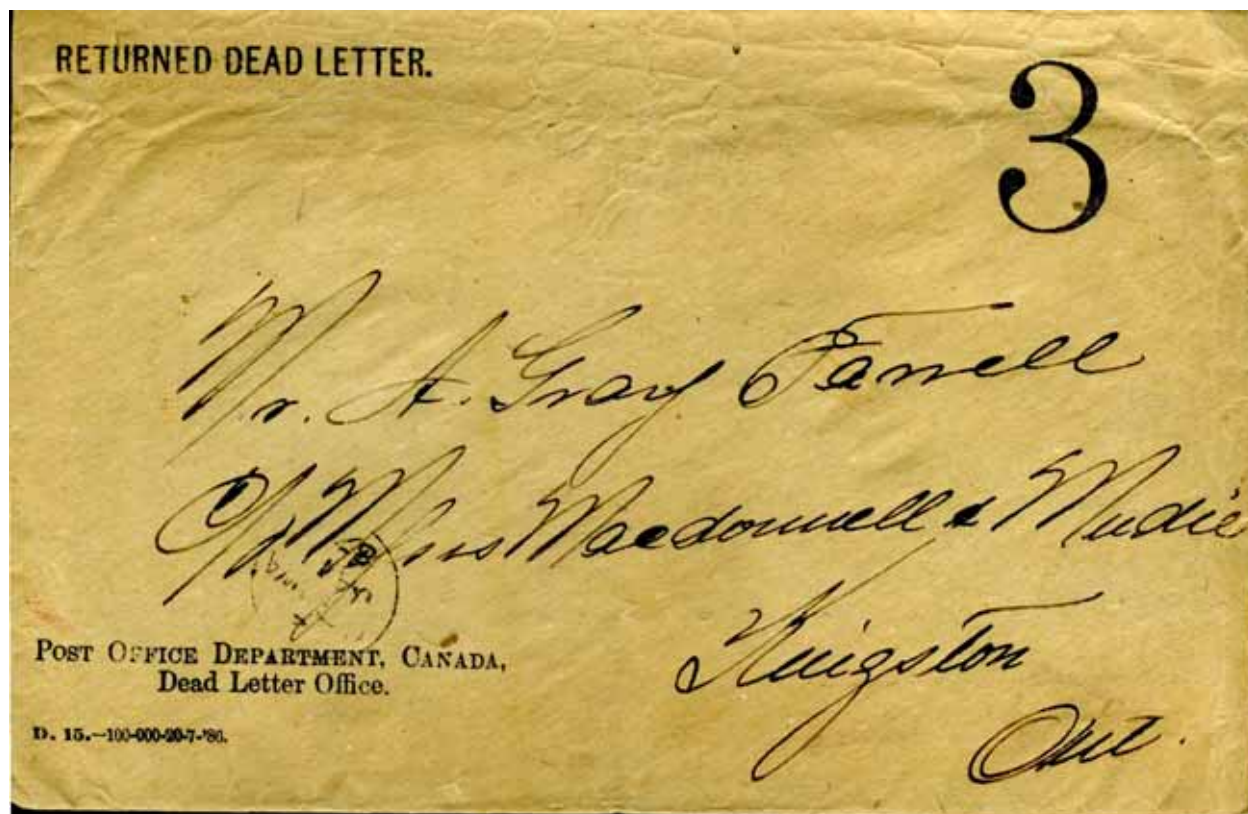 RETURNED DEAD LETTER.
3
Mr. A. Gray Farrell
c/o Messrs Macdonnell & Mudie
Kingston
Ont.
POST OFFICE DEPARTMENT, CANADA,
Dead Letter Office.
D. 15.—100-000-20-7-'86.